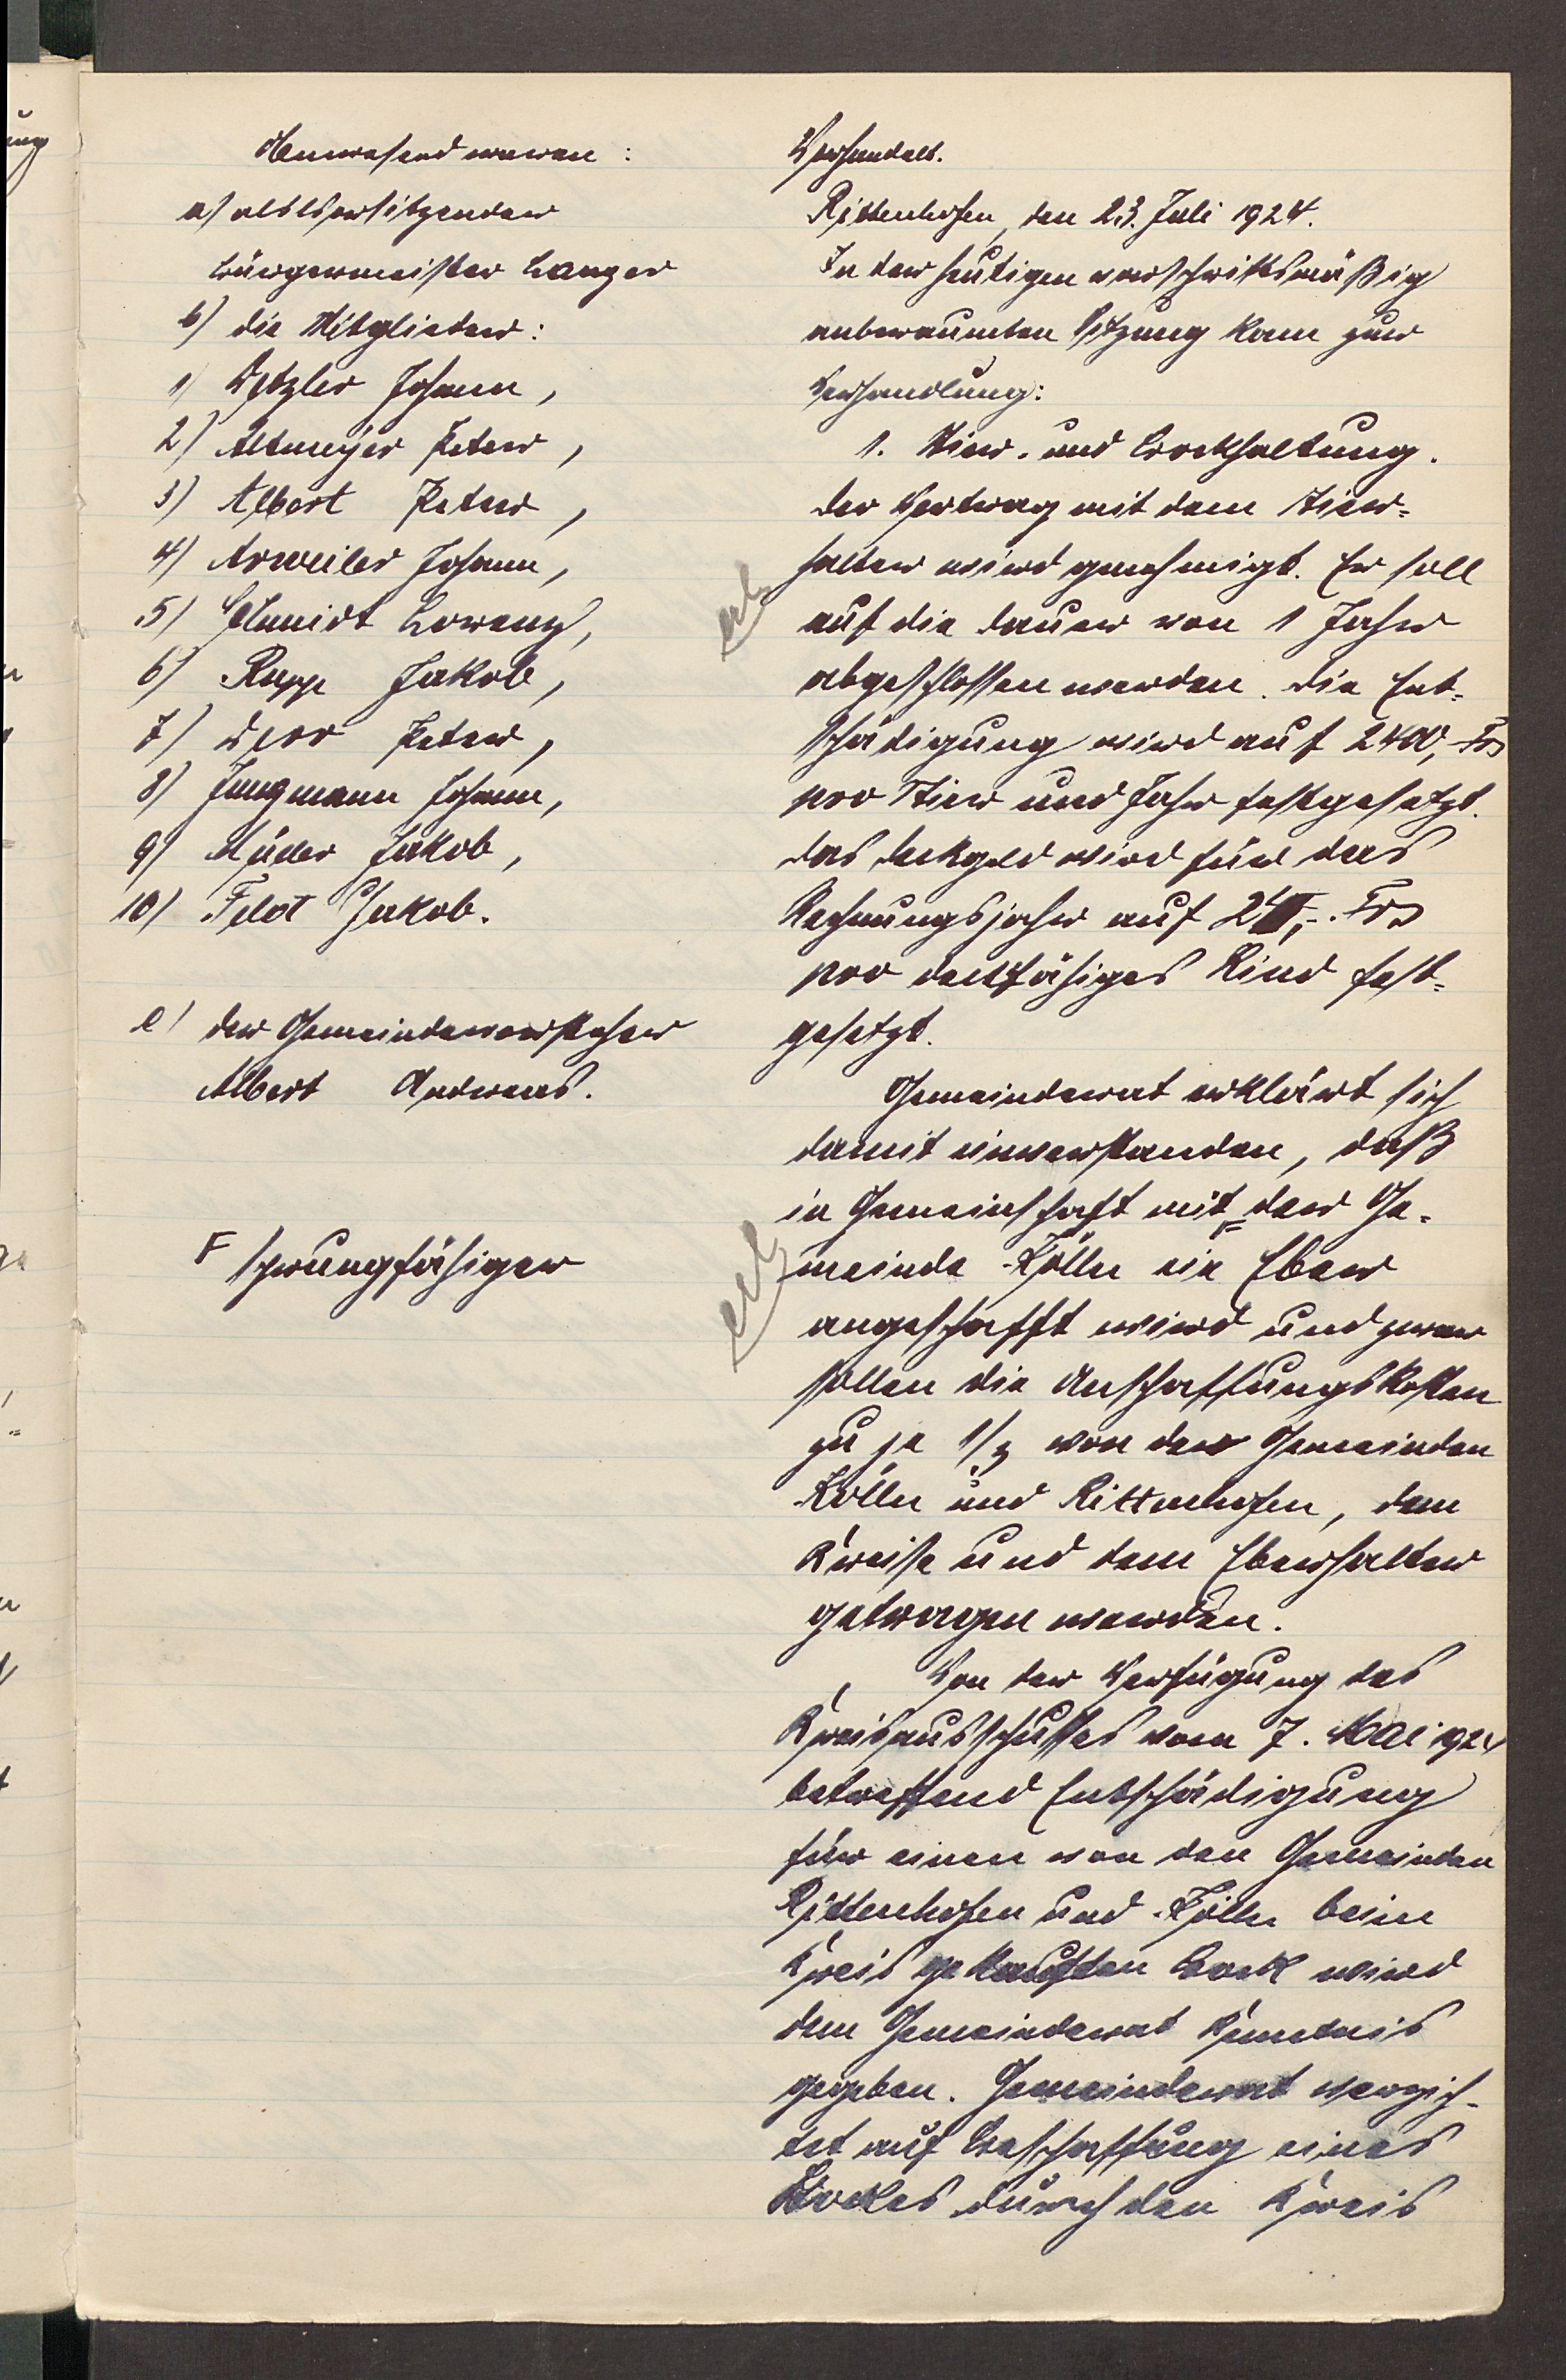 Anwesend waren:
a) als Vorsitzender
Bürgermeister Langer
b) die Mitglieder:
1) Detzler Johann,
2) Altmeyer Peter,
3) Albert Peter,
4) Arweiler Johann,
5) Schmidt Lorenz,
6) Rupp Jakob,
7) Derr Peter,
8) Jungmann Johann,
9) Müller Jakob,
10) Feld Jakob.
c) der Gemeindevorsteher
Albert Andreas.
F sprungfähiger
Verhandelt.
Rittenhofen, den 23. Juli 1924.
In der heutigen vorschriftsmäßig
anberaumten Sitzung kam zur
Verhandlung:
1. Stier- und Bockhaltung.
Der Vertrag mit dem Stier-
halter wird genehmigt. Er soll
auf die Dauer von 1 Jahr
abgeschlossen werden. Die Ent-
schädigung wird auf 2400,- Frs
pro Stier und Jahr festgesetzt.
Das Deckgeld wird für das
Rechnungsjahr auf ,-. Frs
pro deckfähiges Rind fest-
gesetzt.
Gemeinderat erklärt sich
damit einverstanden, daß
in Gemeinschaft mit der Ge-
meinde Kölln ein Eber
angeschafft wird und zwar
sollen die Anschaffungskosten
zu je 1/3 von den Gemeinden
Kölln und Rittenhofen, dem
Kreise und dem Eberhalter
getragen werden.
Von der Verfügung des
Kreisausschusses vom 7. Mai 1924
betreffend Entschädigung
für einen von den Gemeinden
Rittenhofen und Kölln beim
Kreis gekauften Bock wird
dem Gemeinderat Kenntnis
gegeben. Gemeinderat verzich-
tet auf Beschaffung eines
Bockes durch den Kreis